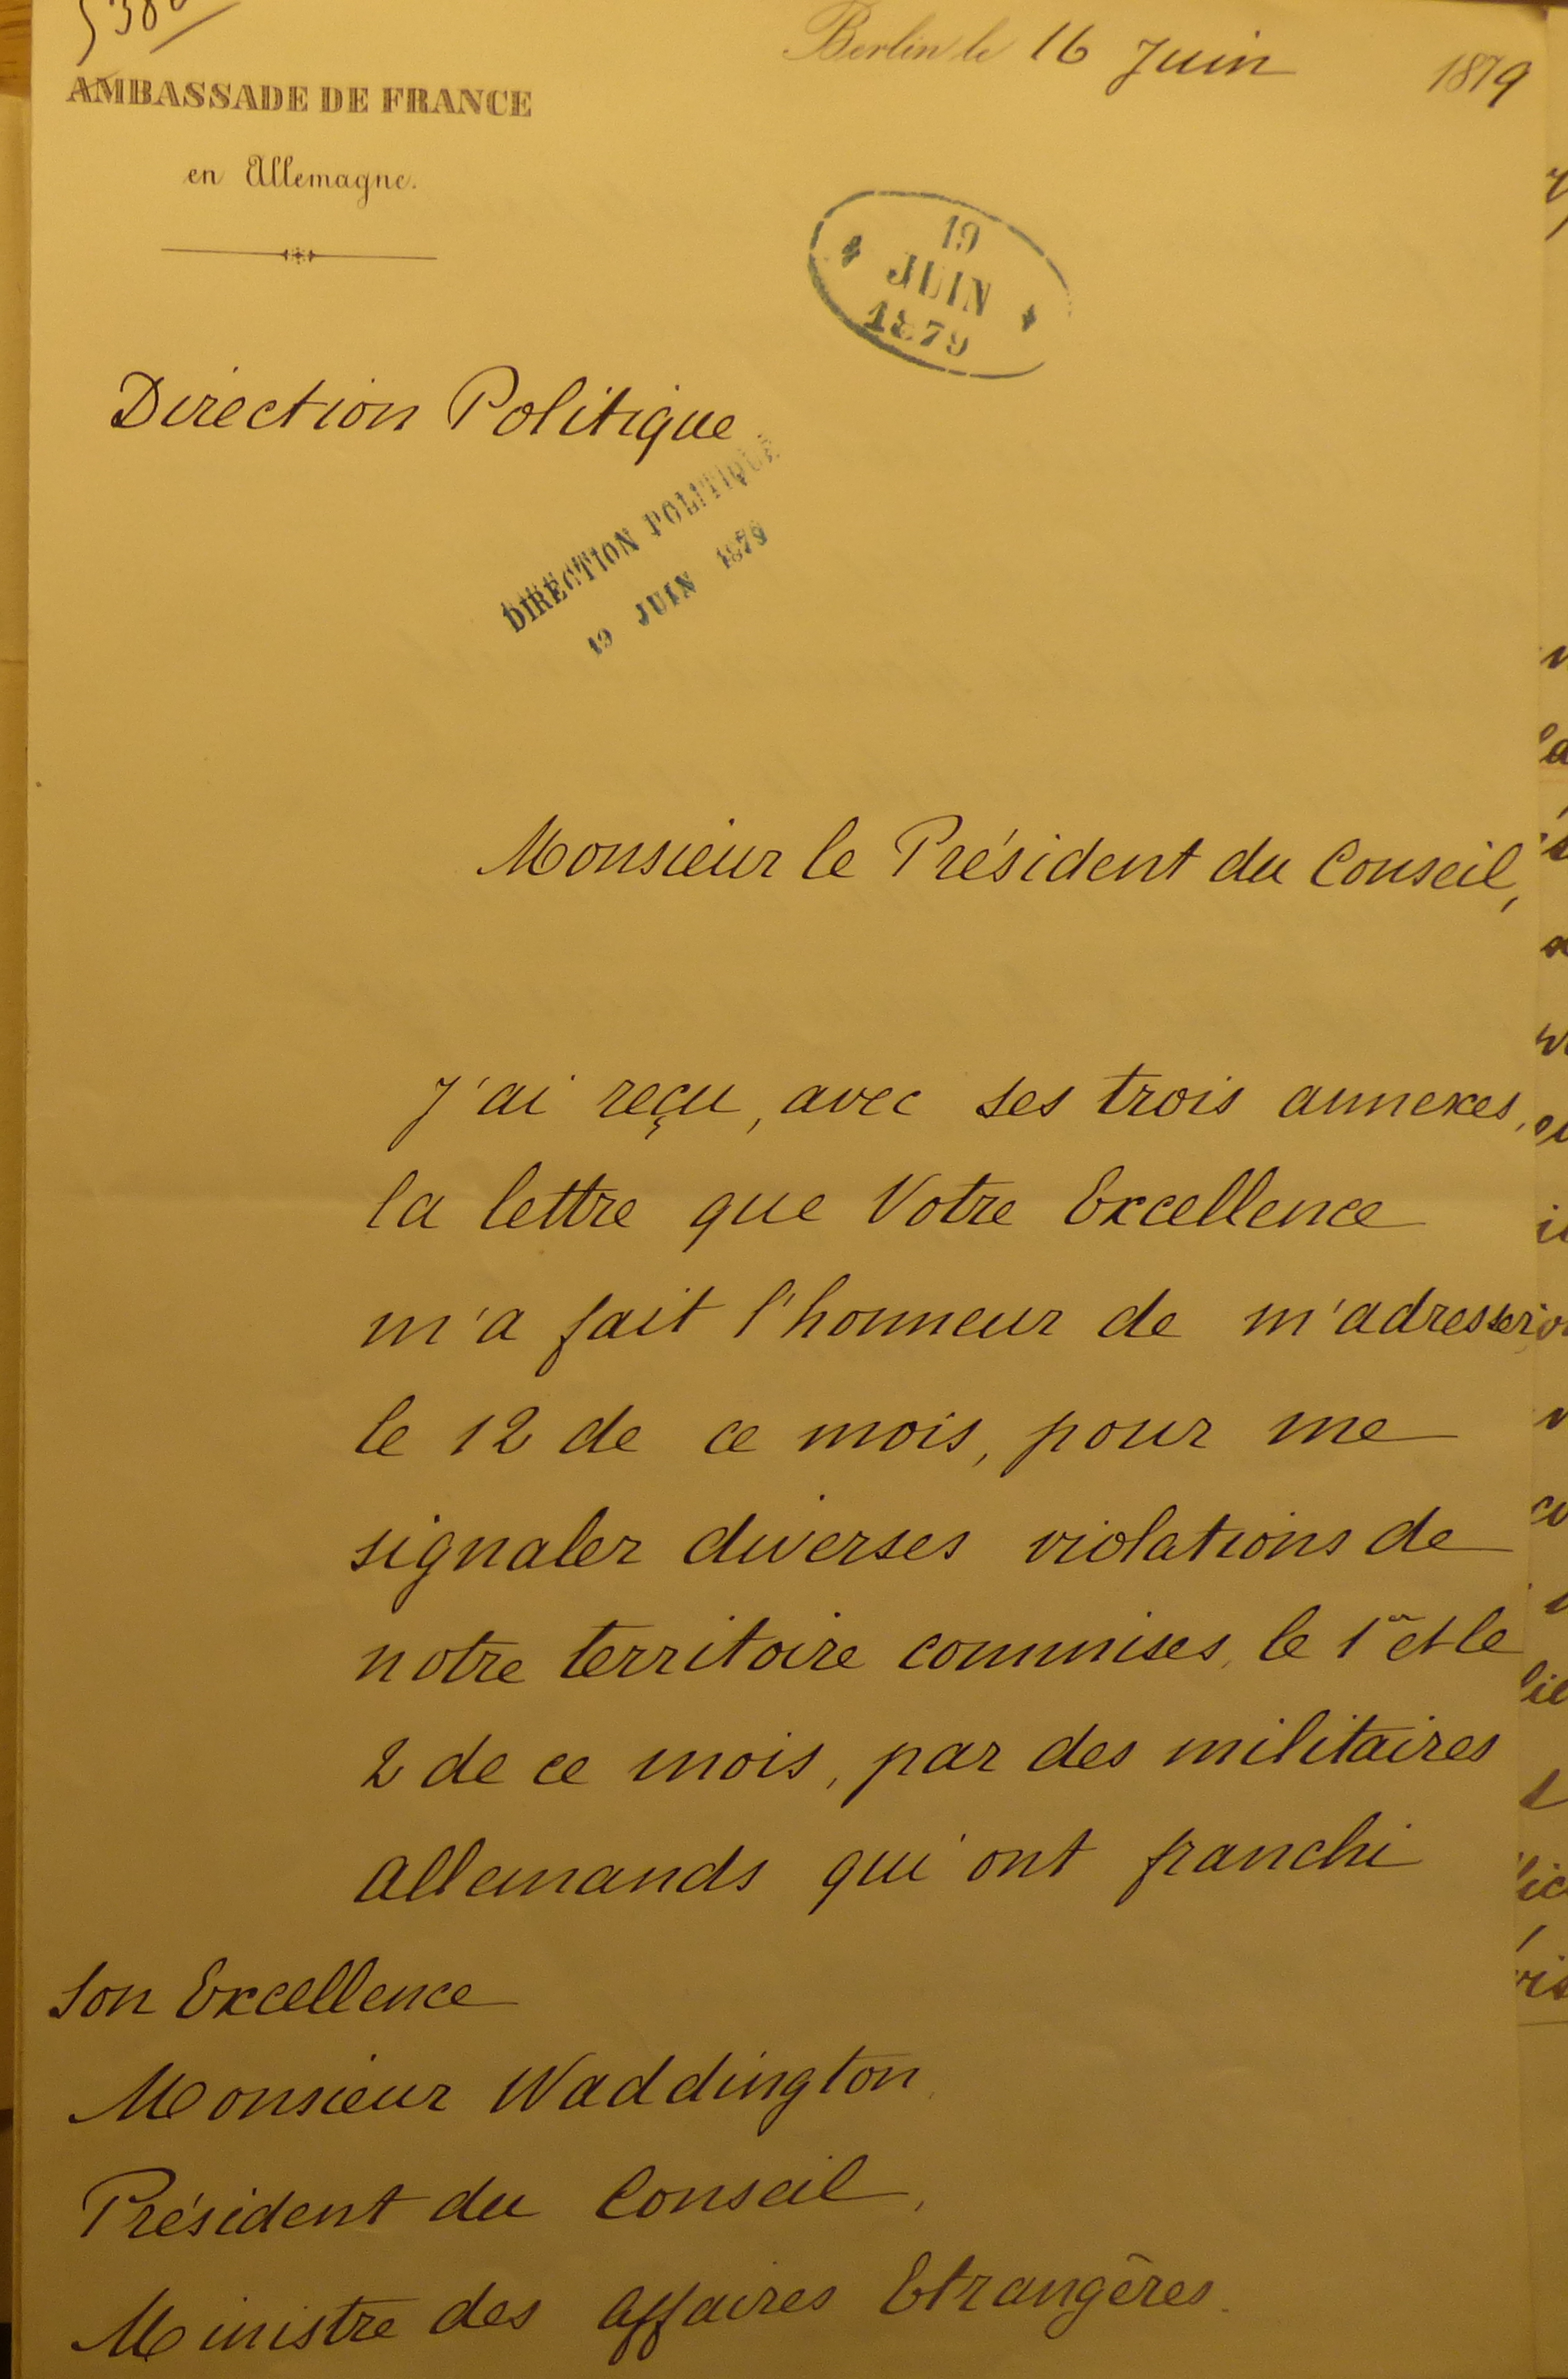 Berlin le 16 Juin 1879
AMBASSADE DE FRANCE
en Allemagne.
19
JUIN
1879
Direction Politique
DIRECTION POLITIQUE
19 JUIN 1879
Monsieur le Président du Conseil,
J'ai reçu, avec ses trois annexes,
la lettre que Votre Excellence
m'a fait l'honneur de m'adresser,
le 12 de ce mois, pour me
signaler diverses violations de
notre territoire commises, le 1er et le
2 de ce mois, par des militaires
allemands qui ont franchi
Son Excellence
Monsieur Waddington,
Président du Conseil,
Ministre des Affaires Etrangères.